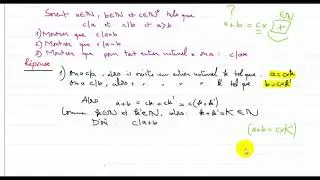 Soient a∈ℕ, b∈ℕ et c∈ℕ* tels que
c/a et c/b et a>b
?
a+b = cx
∈ℕ
1) Montrer que c/a+b
2) Montrer que c/a-b
3) Montrer que pour tout entier naturel
c/ax
Réponse
1) on a c/a, alors il existe un entier naturel k tel que a=cxk
tel que b=cxk'
Alors a+b = ck+ck' = c(k+k')
Comme k∈ℕ et k'∈ℕ, alors k+k'=K∈ℕ
D'où c/a+b
(a+b = cxK)